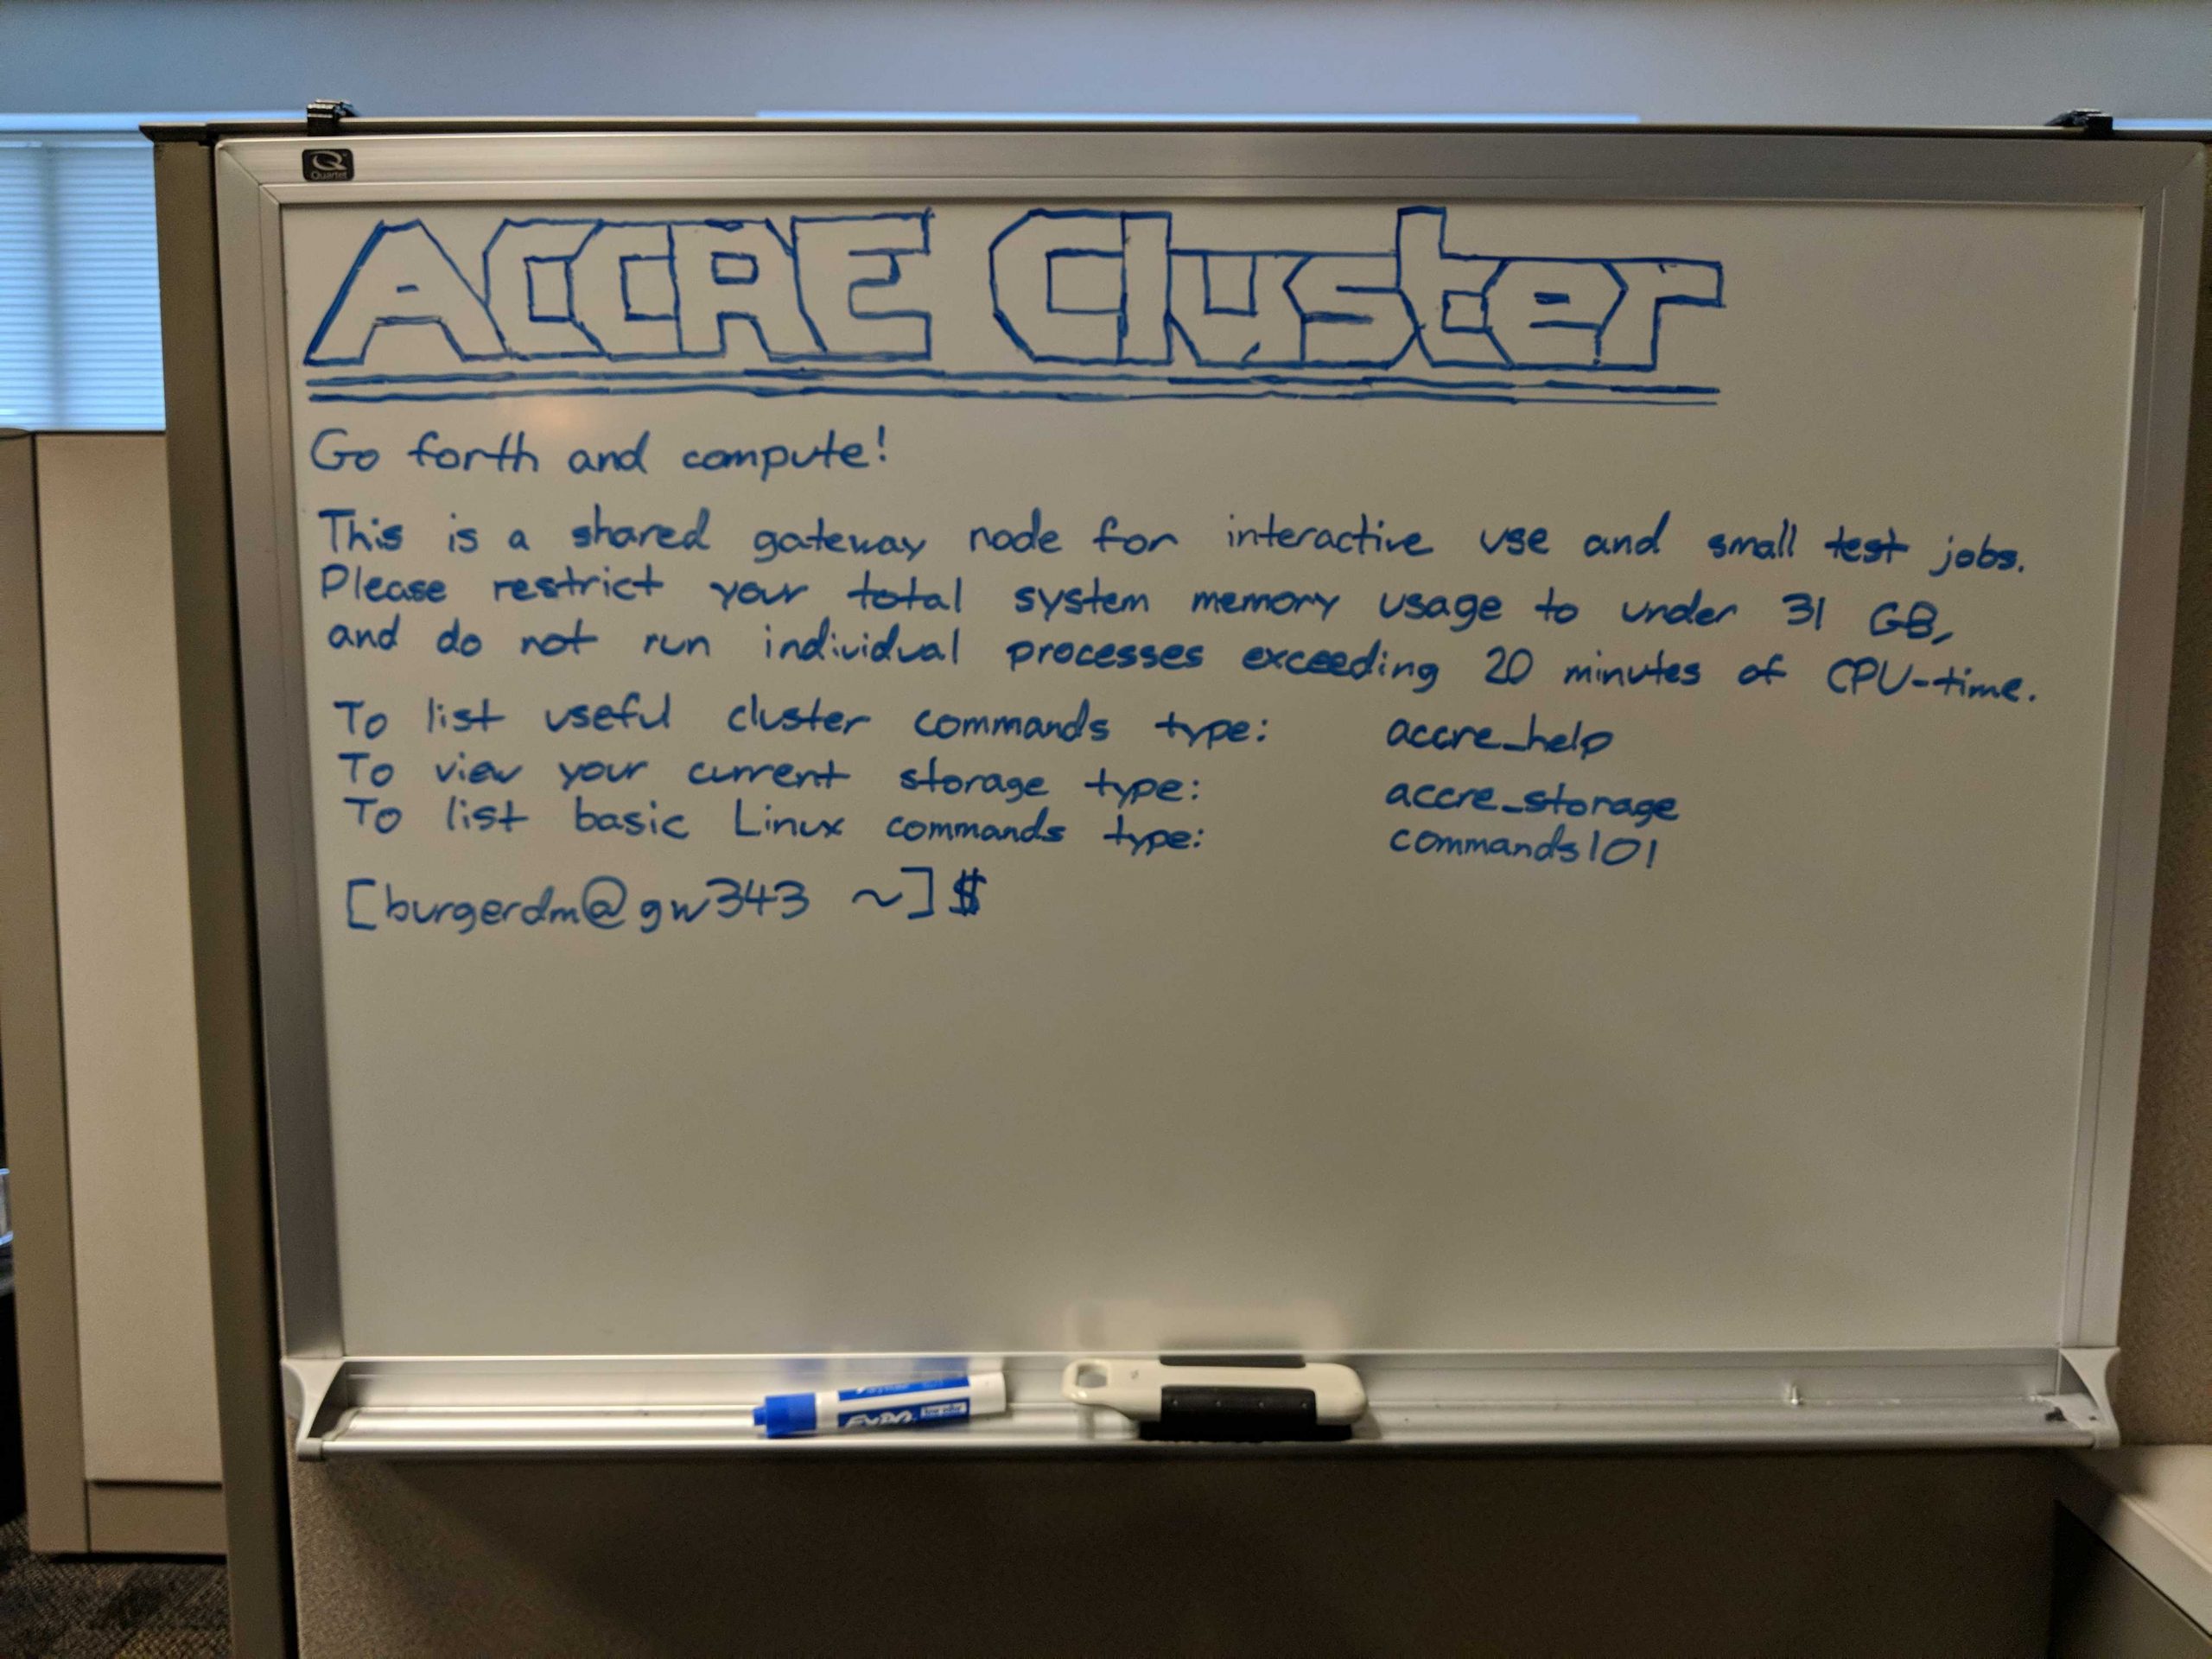 Quartet
ACCRE Cluster
Go forth and compute!
This is a shared gateway node for interactive use and small test jobs.
Please restrict your total system memory usage to under 31 GB,
and do not run individual processes exceeding 20 minutes of CPU-time.
To list useful cluster commands type: accre_help
To view your current storage type: accre_storage
To list basic Linux commands type: commands101
[burgerdm@gw343 ~]$
EXPO